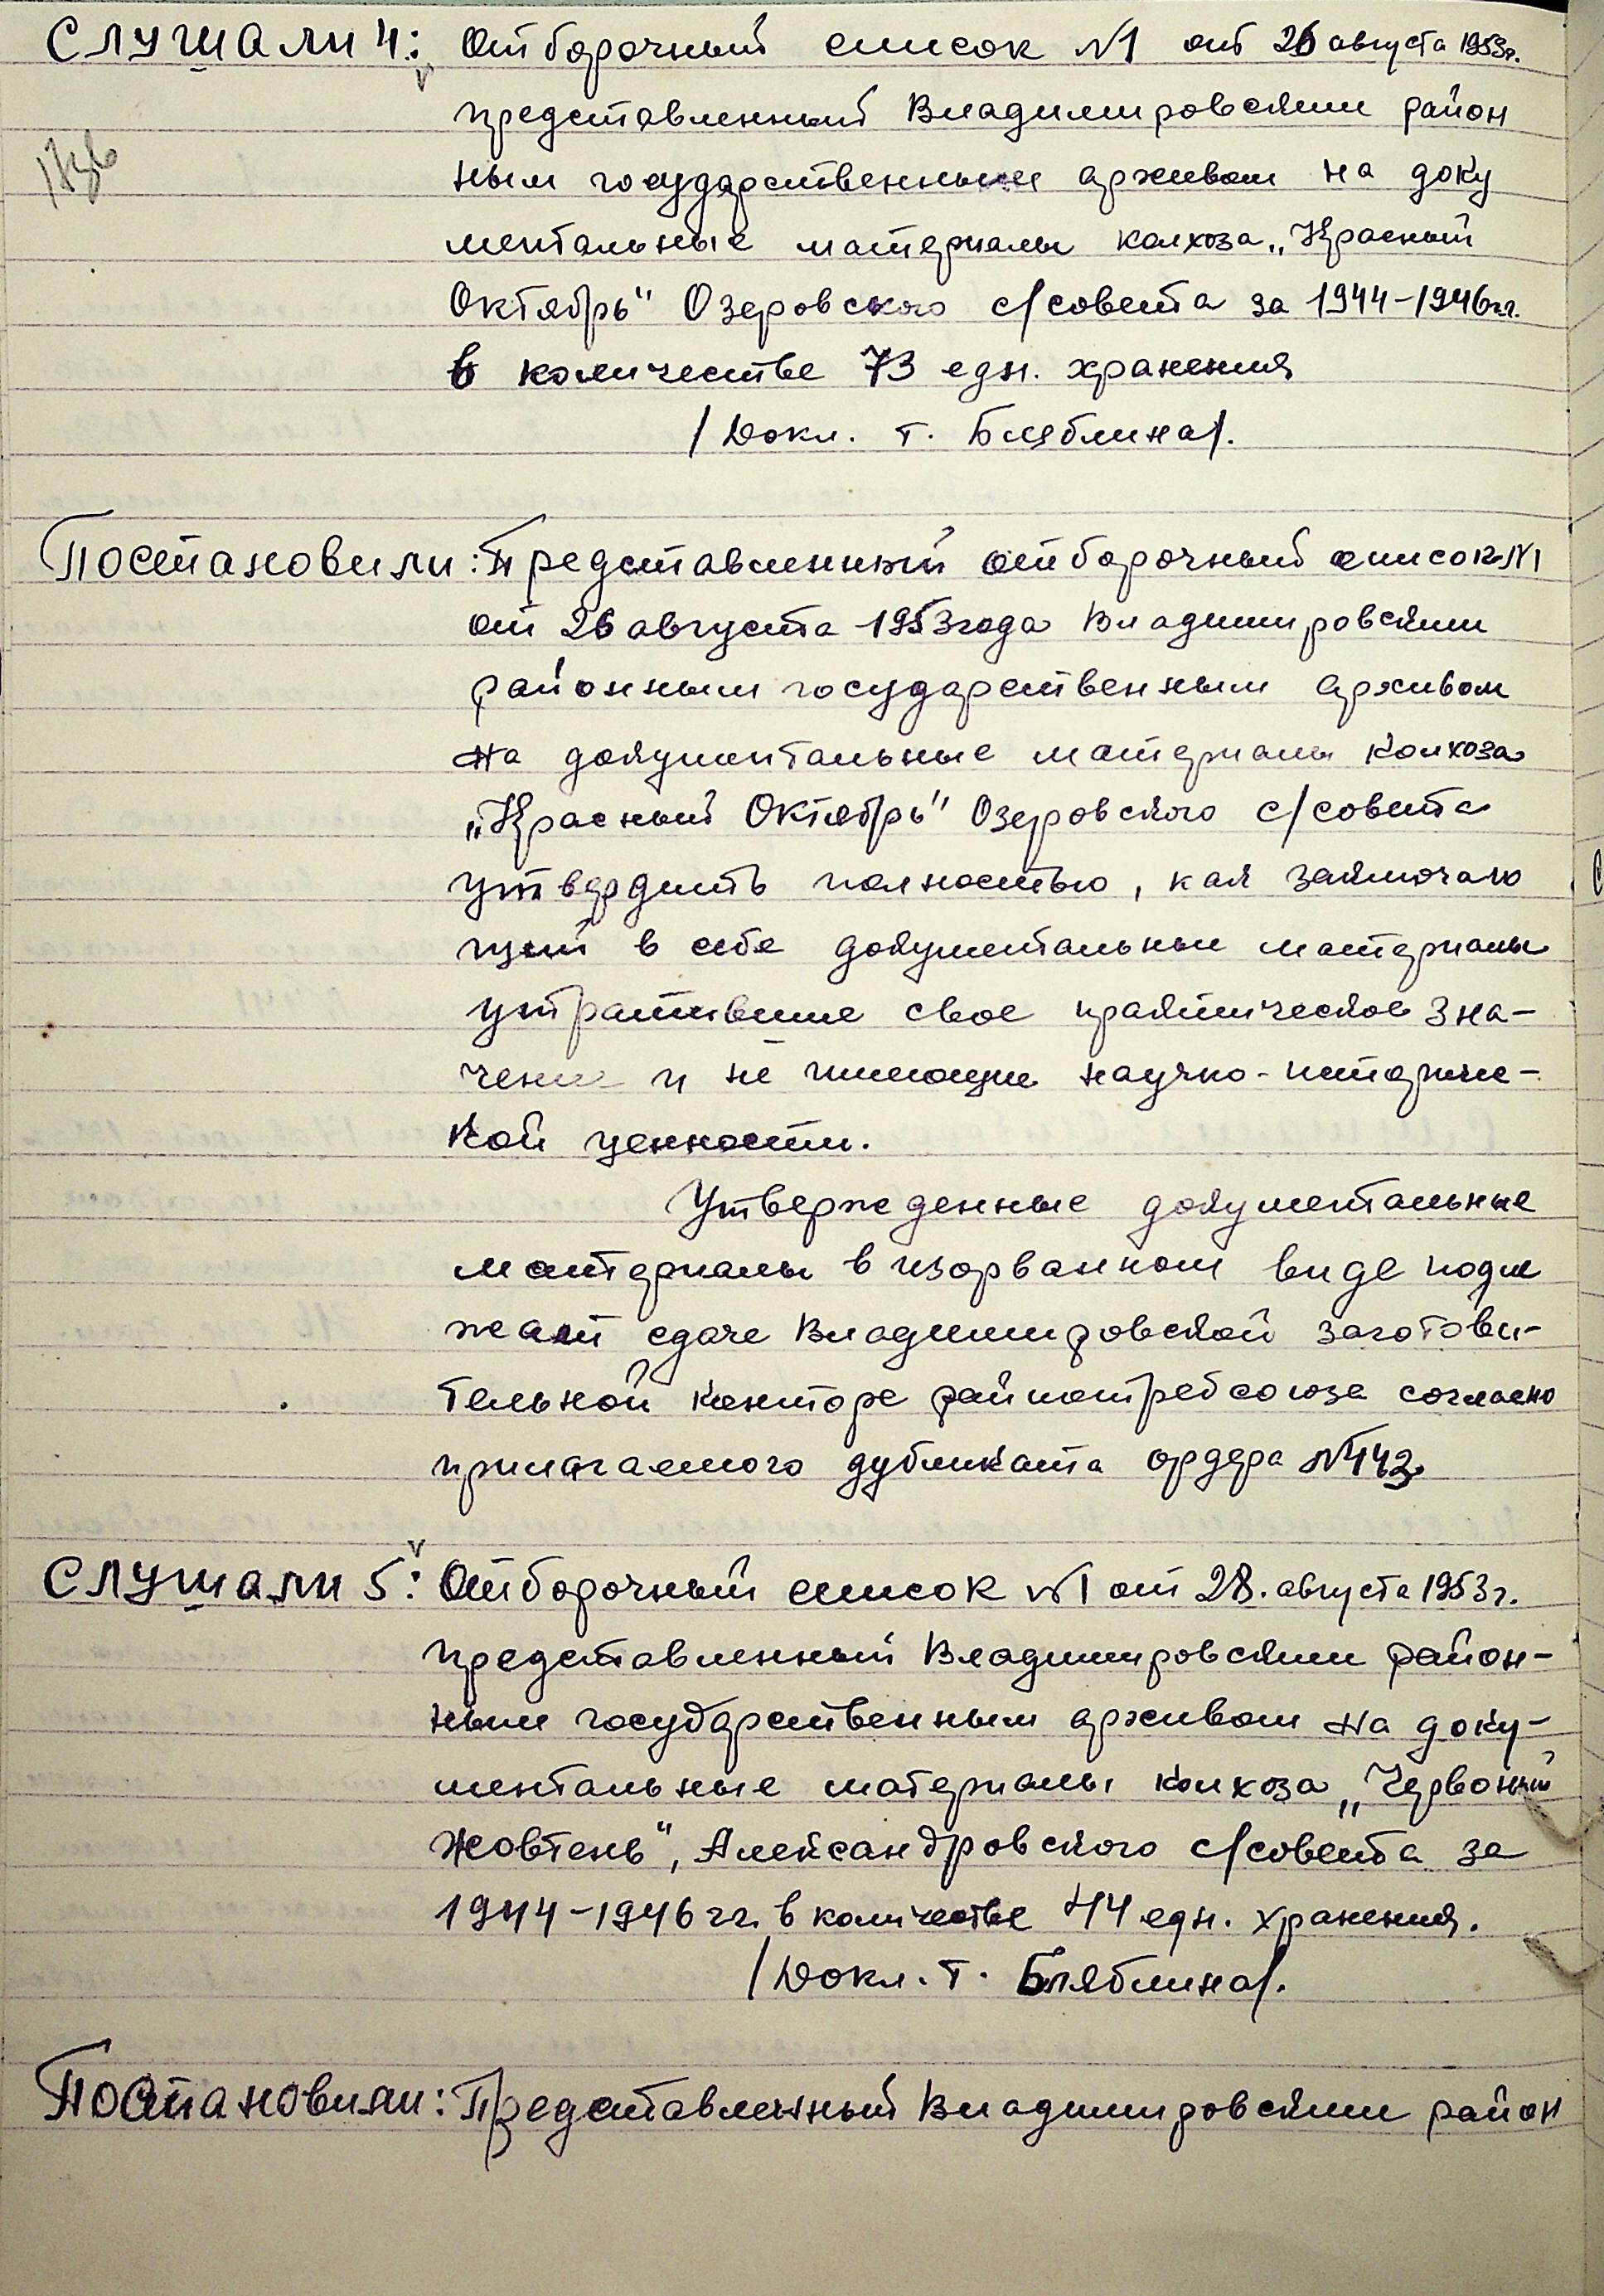 Слушали 4: Отборочный список №1 от 26 августа 1953г.
представленный Владимировским район
ным государственным архивом на доку
ментальные материалы колхоза „Красный
Октябрь" Озеровского с/совета за 1944-1946гг.
в количестве 73 един. хранения
/Докл. т. Бляблина/.
Постановили: Представленный отборочный список №1
от 26 августа 1953 года Владимировским
районным государственным архивом
на документальные материалы колхоза
„Красный Октябрь" Озеровского с/совета
утвердить полностью, как заключаю
щий в себе документальные материалы
утратившие свое практическое зна-
чение и не имеющие научно-историчес-
кой ценности.
Утвержденные документальные
материалы в изорванном виде подле
жат сдаче Владимировской заготови-
тельной конторе райпотребсоюза согласно
прилагаемого дубликата ордера №443.
Слушали 5: Отборочный список №1 от 28. августа 1953г.
представленный Владимировским район-
ным государственным архивом на доку-
ментальные материалы колхоза „Червоный
Жовтень", Александровского с/совета за
1944-1946 гг. в количестве 44 един. хранения.
/Докл. т. Бляблина/.
Постановили: Представленный Владимировским район